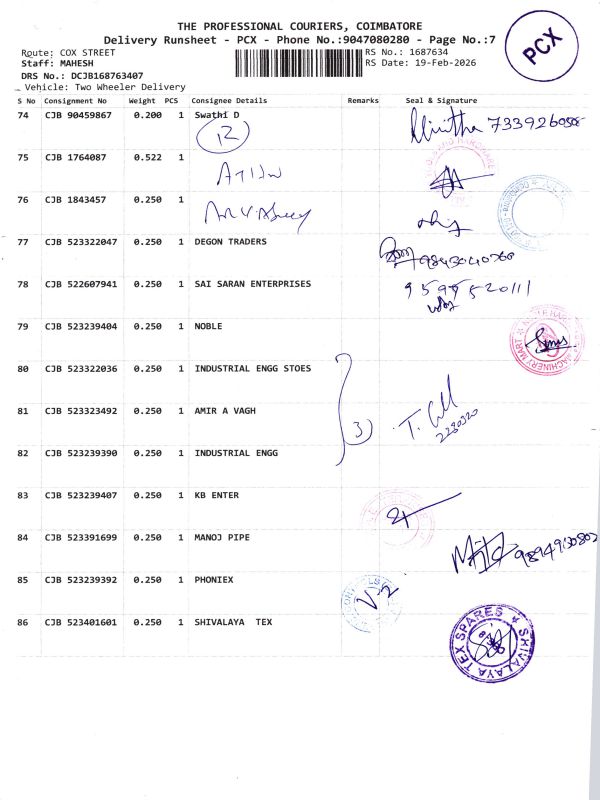 THE PROFESSIONAL COURIERS, COIMBATORE
Delivery Runsheet - PCX - Phone No.:9047080280 - Page No.:7
PCX
Route: COX STREET
RS No.: 1687634
Staff: MAHESH
RS Date: 19-Feb-2026
DRS No.: DCJB168763407
Vehicle: Two Wheeler Delivery
S No Consignment No Weight PCS Consignee Details Remarks Seal & Signature
74 CJB 90459867 0.200 1 Swathi D
12
75 CJB 1764087 0.522 1
76 CJB 1843457 0.250 1
77 CJB 523322047 0.250 1 DEGON TRADERS
9843040760
78 CJB 522607941 0.250 1 SAI SARAN ENTERPRISES
79 CJB 523239404 0.250 1 NOBLE
80 CJB 523322036 0.250 1 INDUSTRIAL ENGG STOES
81 CJB 523323492 0.250 1 AMIR A VAGH
3
82 CJB 523239390 0.250 1 INDUSTRIAL ENGG
83 CJB 523239407 0.250 1 KB ENTER
84 CJB 523391699 0.250 1 MANOJ PIPE
85 CJB 523239392 0.250 1 PHONIEX
86 CJB 523401601 0.250 1 SHIVALAYA TEX
SHIVALAYA TEX SPARES